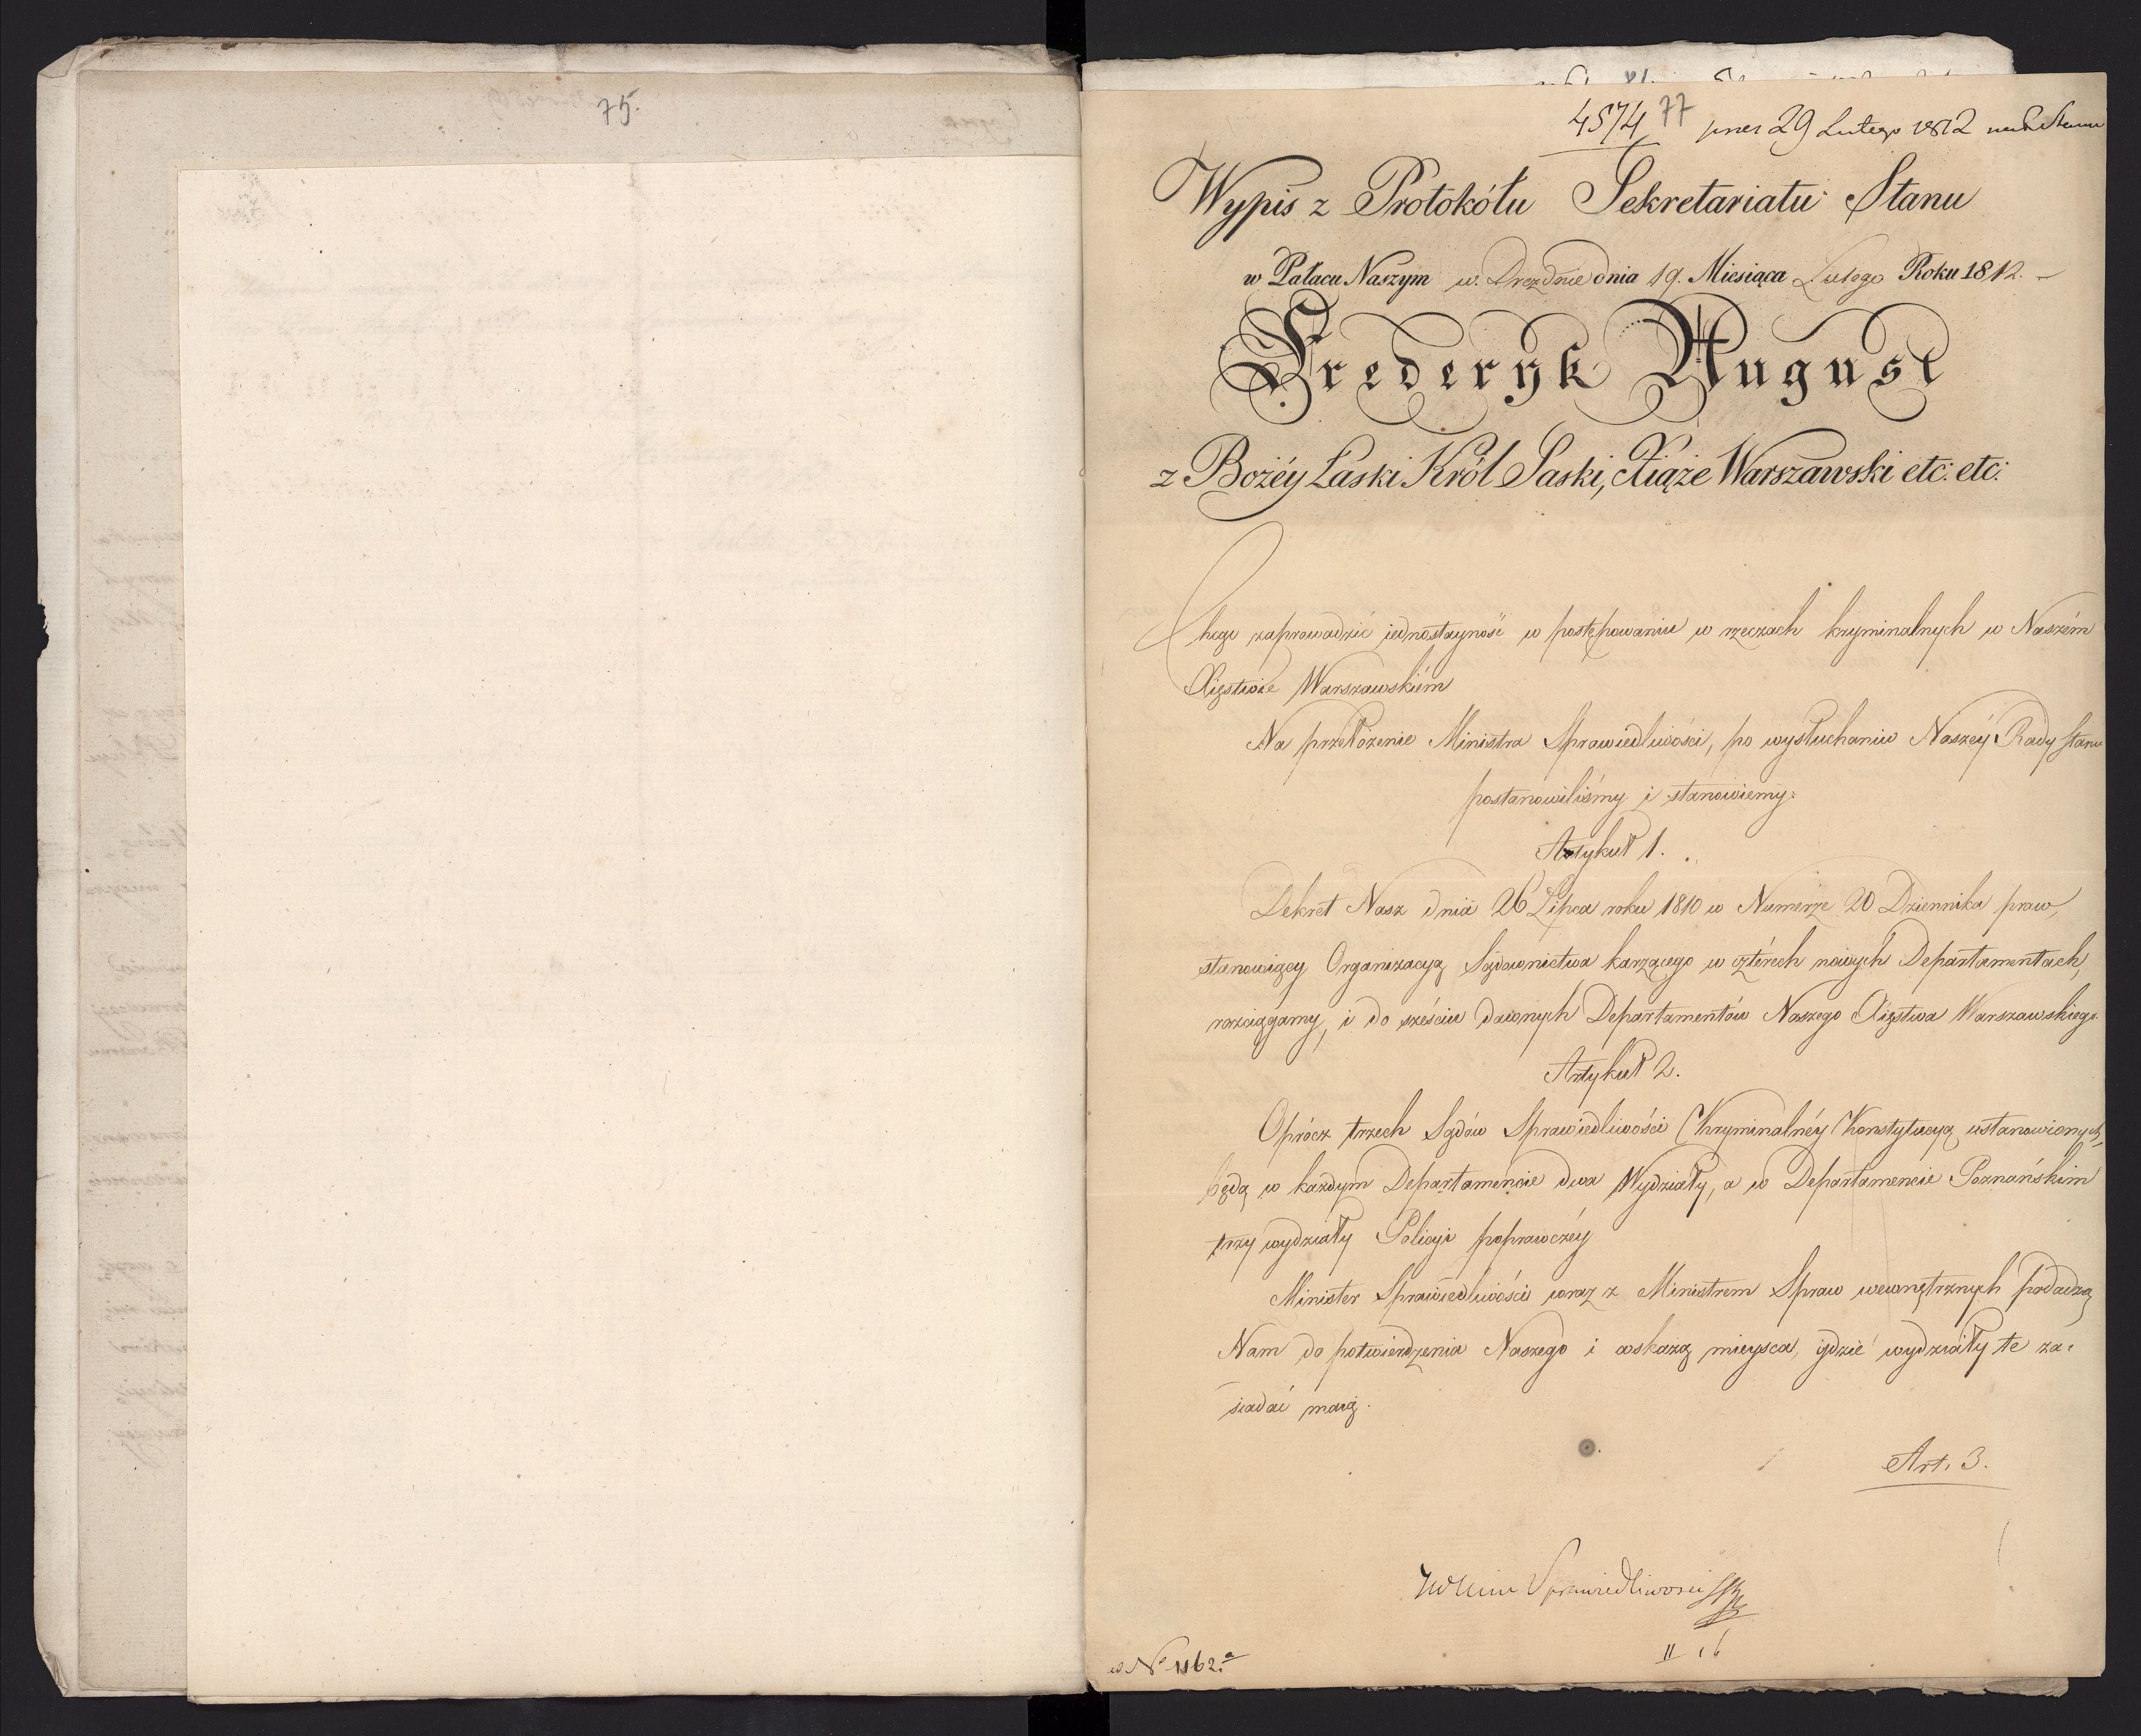 75.
4574 77 29 Lutego 1812
Wypis z Protokółu Sekretariatu Stanu
w Pałacu Naszym w Dreźdnie dnia 19. Miesiąca Lutego Roku 1812.
Frederyk August
z Bożéy Łaski Król Saski, Xiąże Warszawski etc: etc:
Chcąc zaprowadzić iednostayność w postępowaniu w rzeczach kryminalnych w Naszém
Xięstwie Warszawskiém
Na przełożenie Ministra Sprawiedliwości, po wysłuchaniu Naszéy Rady Stanu
postanowiliśmy i stanowiemy:
Artykuł 1.
Dekret Nasz dnia 26 Lipca roku 1810 w Numerze 20 Dziennika praw,
stanowiący Organizacyą Sądownictwa karzącego w cztérech nowych Departamentach,
rozciągamy, i do sześciu dawnych Departamentów Naszego Xięstwa Warszawskiego.
Artykuł 2.
Oprócz trzech Sądów Sprawiedliwości Kryminalnéy Konstytucyą ustanowionych,
będą w każdym Departamencie dwa Wydziały, a w Departamencie Poznańskim
trzy wydziały Policyi poprawczéy
Minister Sprawiedliwości wraz z Ministrem Spraw wewnętrznych podadzą
Nam do potwierdzenia Naszego i wskażą mieysca, gdzie wydziały te za-
siadać maią.
Art. 3.
Sprawiedliwosci
II 16
w Nº 1162.a